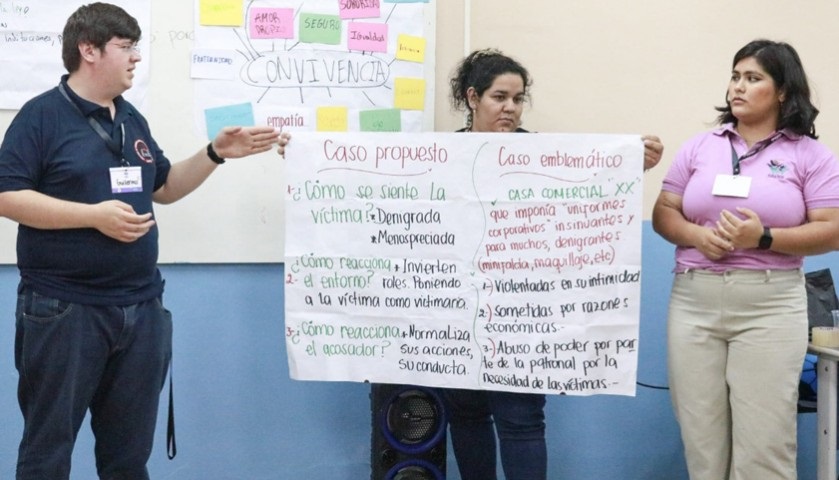 AMOR PROPIO
SEGURO
SORORIDAD
Igualdad
CONVIVENCIA
empatía
Caso propuesto
1-¿Cómo se siente la
víctima? * Denigrada
* Menospreciada
¿Cómo reacciona * Invierten
2- el entorno? roles. Poniendo
a la víctima como victimaria.
3-¿Cómo reacciona * Normaliza
el acosador? sus acciones,
su conducta.
Caso emblemático
CASA COMERCIAL "XX"
que imponía "uniformes
corporativos" insinuantes y
para muchos, denigrantes
(minifalda, maquillaje, etc)
1-) Violentadas en su intimidad
2-) Sometidas por razones
económicas.-
3-) Abuso de poder por par
te de la patronal por la
necesidad de las víctimas.-